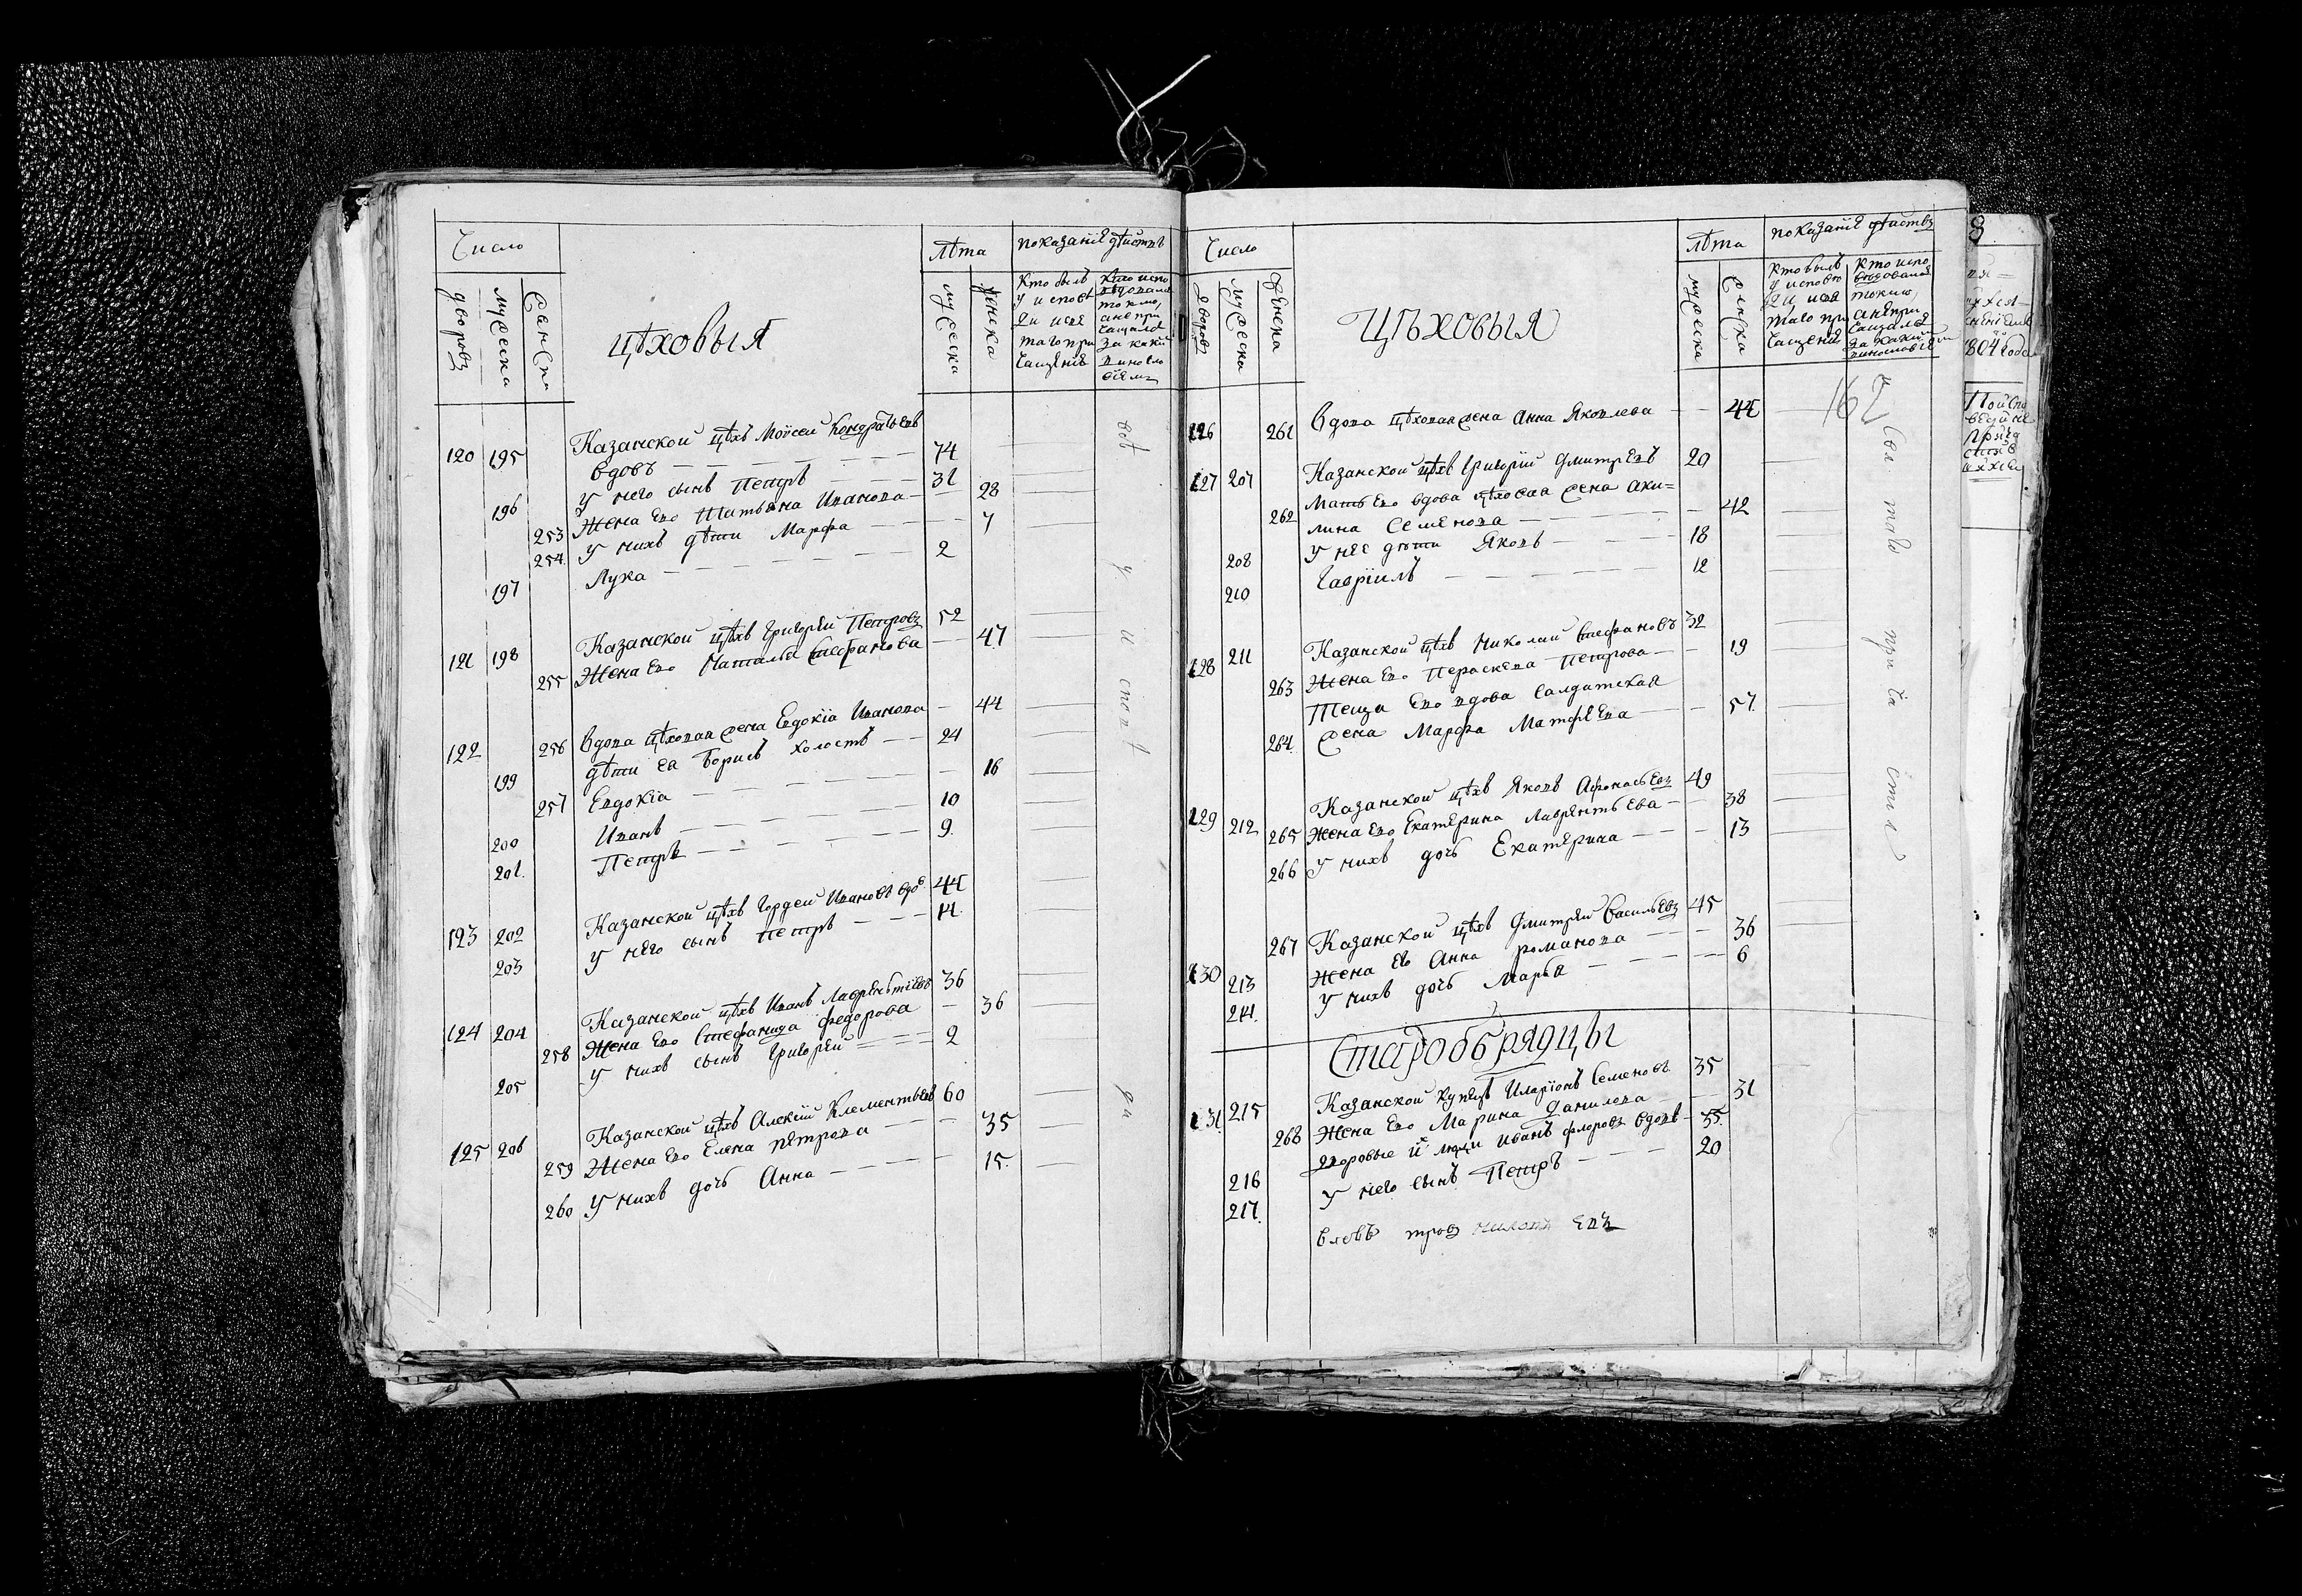 Число
Лѣта
показаніе дѣиствъ
дворовъ
мужеска
женска
цѣховыя
мужеска
женска
Кто былъ у исповѣди и свя таго при чащенія
Кто испо вѣдовался токмо, а не при чащался за какимъ виносло віемъ
Казанской цѣхъ Моисей Кондратьевъ
120 195 вдовъ 74
196 У него сынъ Петръ 31
253 Жена Ево Татьяна Иванова 28
254 У нихъ дѣти Марфа 7
197 Лука 2
121 198 Казанской цѣхъ Григорей Петровъ 52
255 Жена Ево Наталья Стефанова 47
122 256 Вдова цѣховая жена Евдокіа Иванова 44
199 дѣти еа Борисъ холостъ 24
257 Евдокіа 16
200 Иванъ 10
201 Петръ 9
123 202 Казанской цѣхъ Гордей Ивановъ вдов 44
203 У него сынъ Петръ 14
124 204 Казанской цѣхъ Иванъ Лаврентіевъ 36
258 Жена Ево Стефанида Федорова 36
205 У нихъ сынъ Григорей 2
125 206 Казанской цѣхъ Алексій Клементьевъ 60
259 Жена Ево Елена Петрова 35
260 У нихъ дочь Анна 15
у исповѣ ди
Число
Лѣта
показаніе дѣиствъ
дворовъ
мужеска
женска
ЦѢХОВЫЯ
мужеска
женска
Кто былъ у исповѣ ди и свя таго при чащенія
Кто испо вѣдовался токмо, а не при чащался за какимъ винословіем
162
126 261 Вдова цѣховая жена Анна Яковлева 44
127 207 Казанской цѣхъ Григорій Дмитревъ 20
262 Мать Ево вдова цѣховая жена Аки=
лина Семенова 42
208 У нее дѣти Яковъ 18
210 Гавріилъ 12
128 211 Казанской цѣхъ Николай Стефановъ 32
263 Жена Ево Пераскева Петрова 19
Теща Ево вдова салдатская
264 жена Марфа Матфѣева 57
129 212 Казанской цѣхъ Яковъ Афонасьевъ 49
265 Жена Ево Екатерина Лаврентьева 38
266 У нихъ дочь Екатерина 13
267 Казанской цѣхъ Дмитрей Васильевъ 45
130 213 Жена Ево Анна Романова 36
214 У нихъ дочь Марья 6
Старообрядцы
131 215 Казанской купецъ Иларіонъ Семеновъ 35
268 Жена Ево Марина Данилова 31
216 дворовые и люди Иванъ Флоровъ вдовъ 55
217 У него сынъ Петръ 20
свя таго при ча стія
804 Года